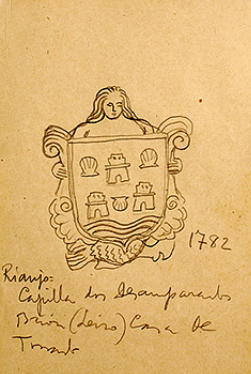 1782
Rianjo:
Capilla dos Desamparados
Brión (Leiro) Casa de